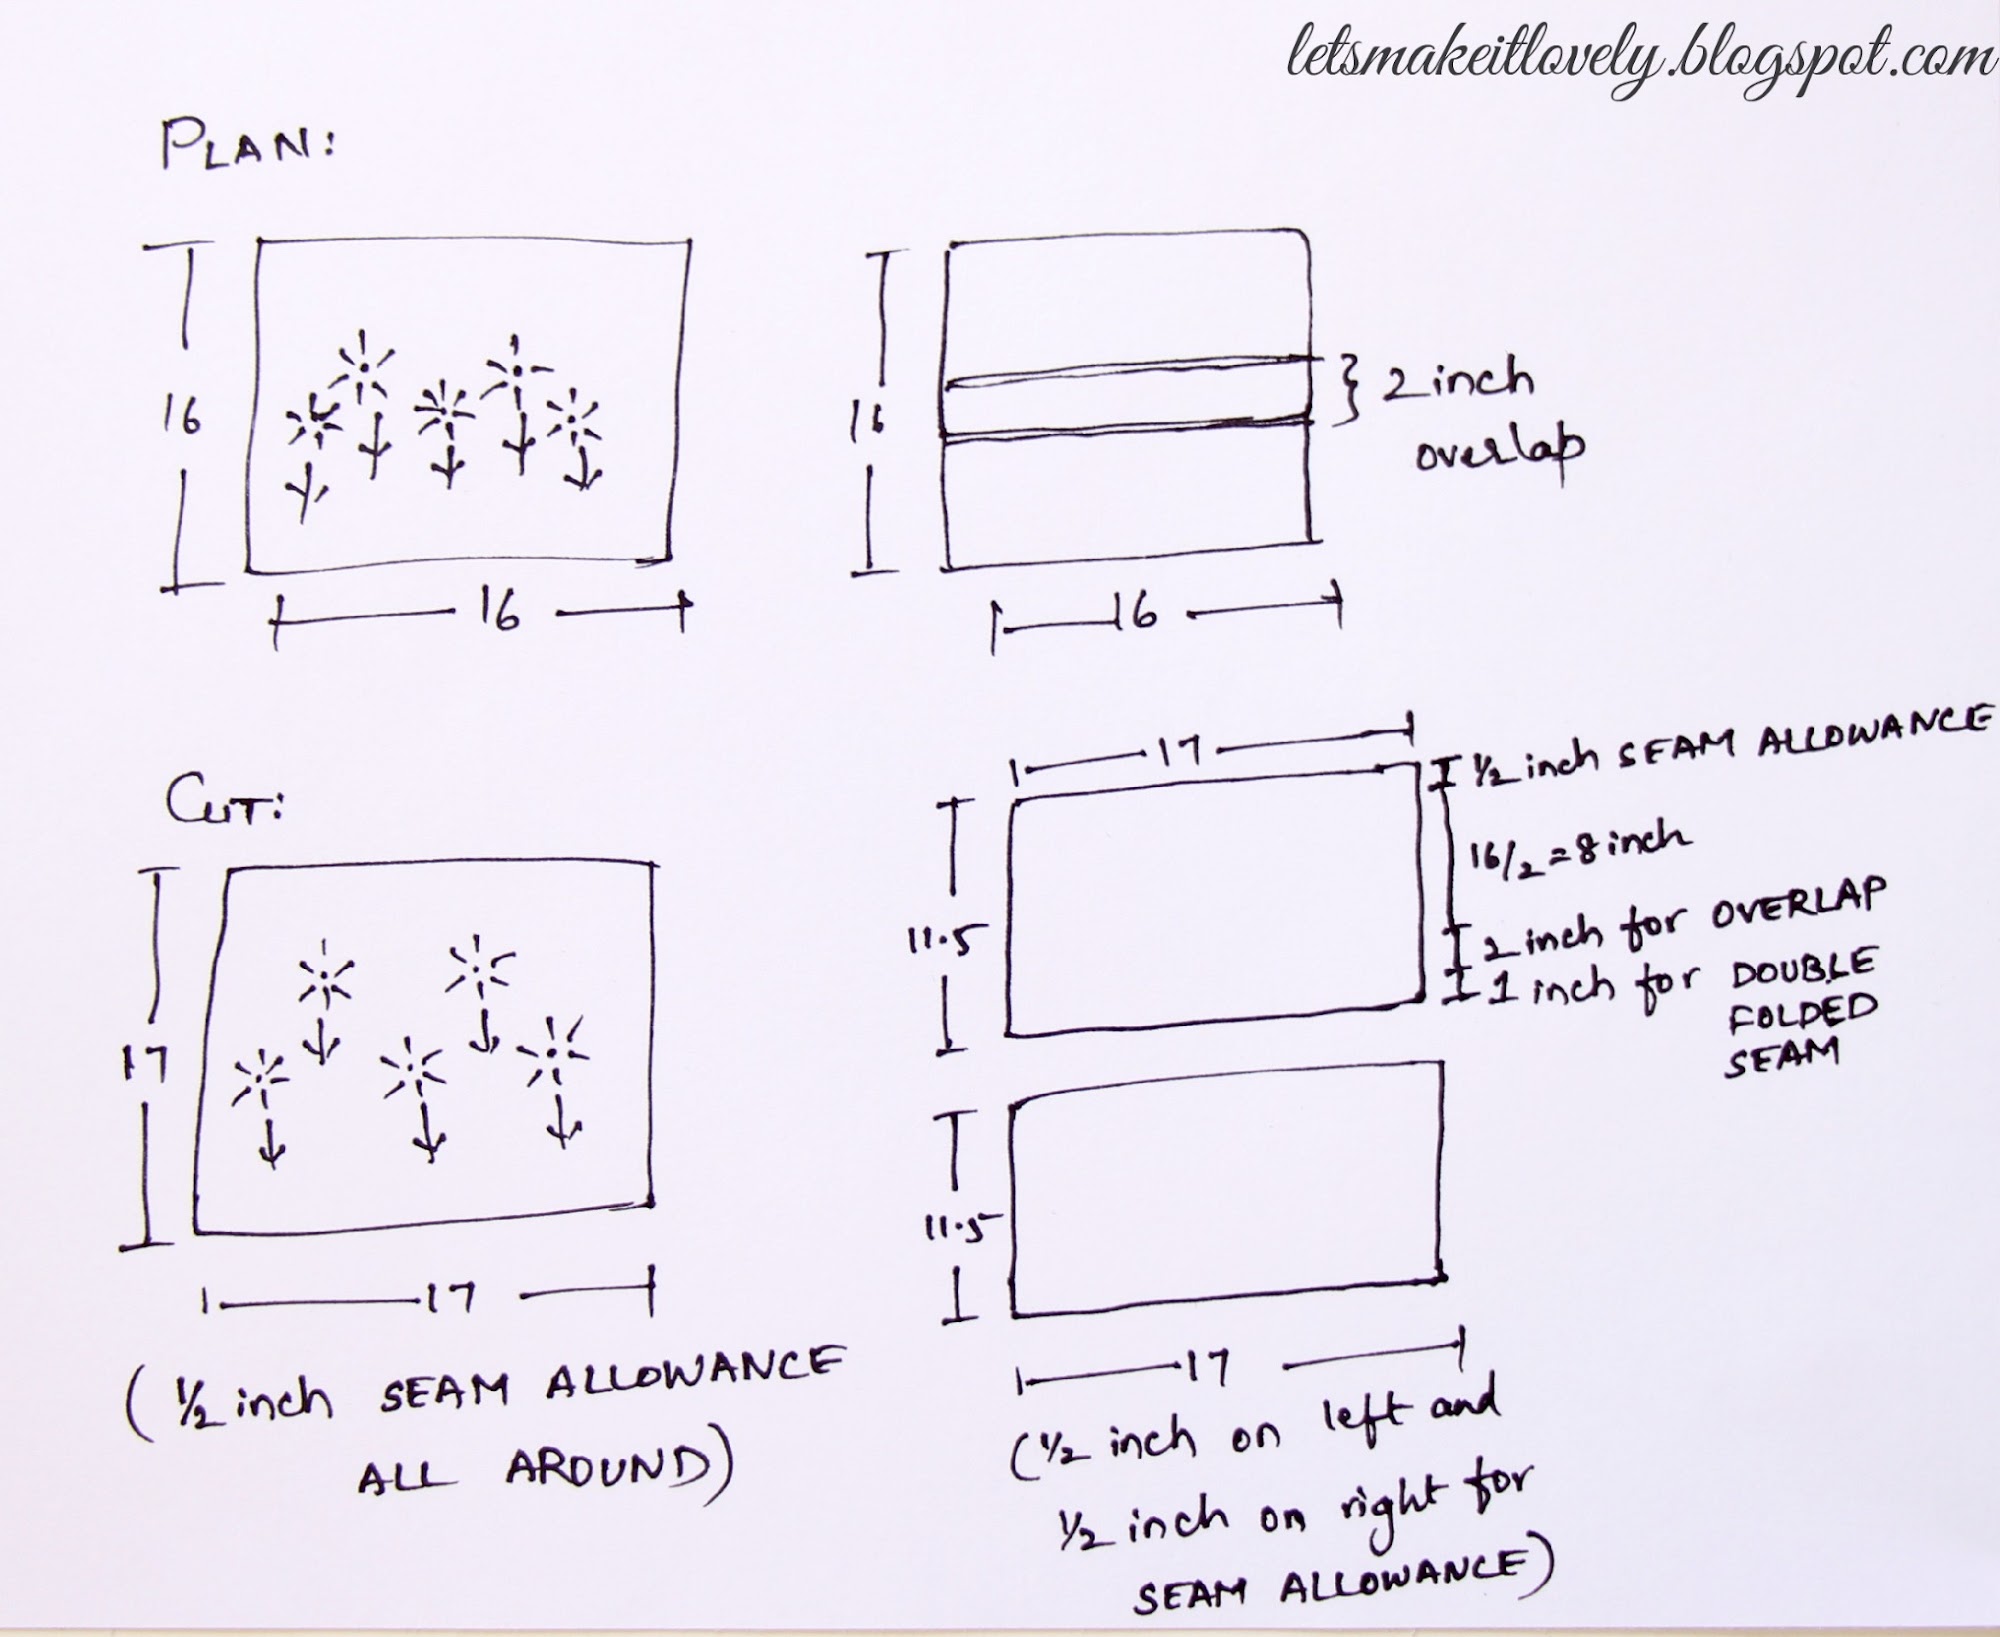 letsmakeitlovely.blogspot.com
PLAN:
16
16
16
2 inch
overlap
16
CUT:
17
17
(½ inch SEAM ALLOWANCE
ALL AROUND)
17
½ inch SEAM ALLOWANCE
16/2 = 8 inch
11.5
2 inch for OVERLAP
1 inch for DOUBLE
FOLDED
SEAM
11.5
17
(½ inch on left and
½ inch on right for
SEAM ALLOWANCE)